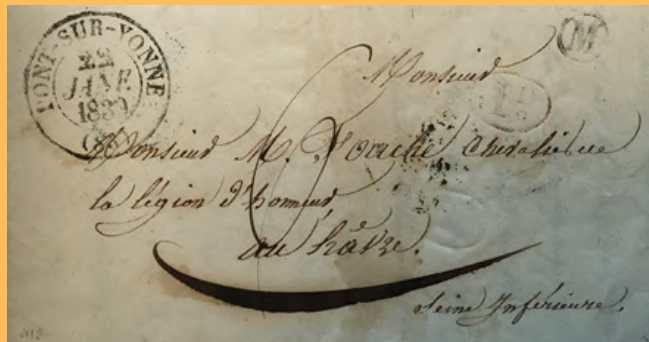 PONT-SUR-YONNE
22
JANV.
1839
(83)
M
Monsieur
1D
Monsieur M. Fouache Chevalier de
la légion d'honneur
au hâvre.
Seine Inférieure.